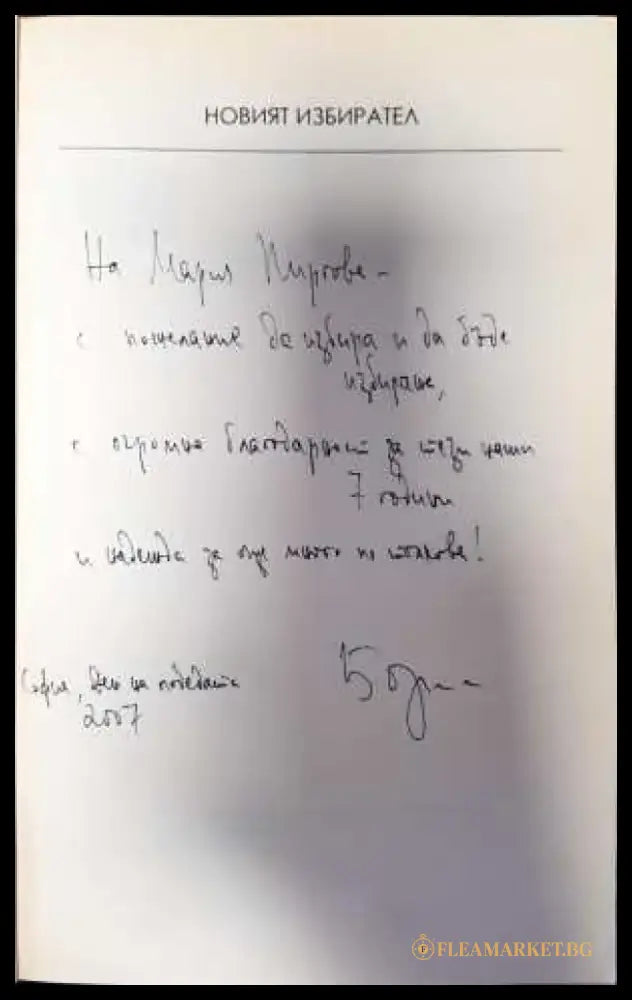 НОВИЯТ ИЗБИРАТЕЛ
На Мария Пиргова –
с пожелание да избира и да бъде
избирана,
с огромна благодарност за тези наши
7 години
и надежда за още много по толкова!
София, Ден на победата
2007
FLEAMARKET.BG